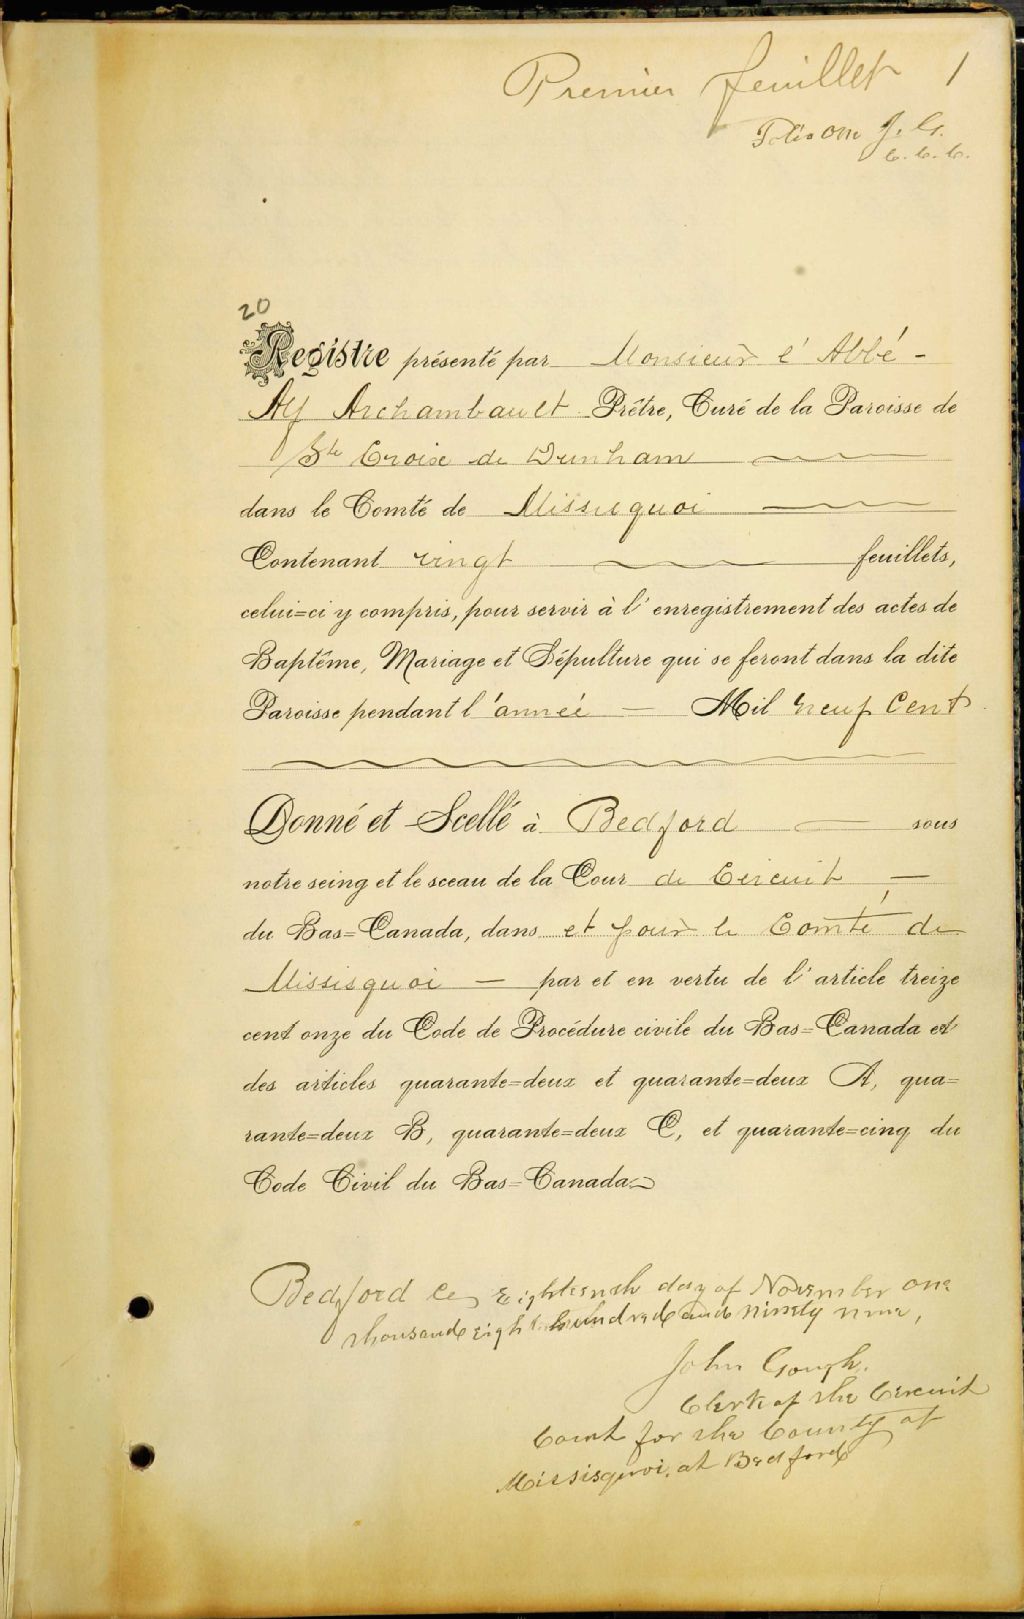 Premier feuillet 1
Folio one J. G.
C. C. C.
20
Registre présenté par Monsieur l'Abbé -
Alf Archambault Prêtre, Curé de la Paroisse de
Ste Croix de Dunham
dans le Comté de Missisquoi
Contenant vingt feuillets,
celui=ci y compris, pour servir à l'enregistrement des actes de
Baptême, Mariage et Sépulture qui se feront dans la dite
Paroisse pendant l'année — Mil neuf Cent
Donné et Scellé à Bedford — sous
notre seing et le sceau de la Cour de Circuit —
du Bas=Canada, dans et pour le Comté de
Missisquoi — par et en vertu de l'article treize
cent onze du Code de Procédure civile du Bas=Canada et
des articles quarante=deux et quarante=deux A, qua=
rante=deux B, quarante=deux C, et quarante=cinq du
Code Civil du Bas=Canada.
Bedford le eighteenth day of November one
thousand eight hundred and ninety nine,
John Gough.
Clerk of the Circuit
Court for the County of
Missisquoi, at Bedford